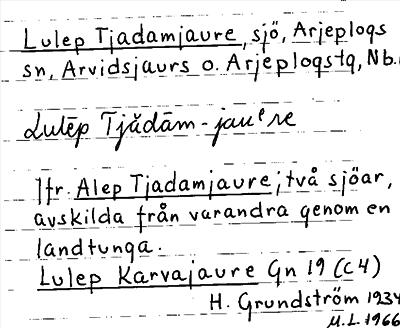 Lulep Tjadamjaure, sjö, Arjeplogs
sn, Arvidsjaurs o. Arjeplogstg, Nb.
Lulēp Tjădām-jauᵉre
Jfr. Alep Tjadamjaure; två sjöar,
avskilda från varandra genom en
landtunga.
Lulep Karvajaure Gn 19 (C4)
H. Grundström 1934
M.L. 1966